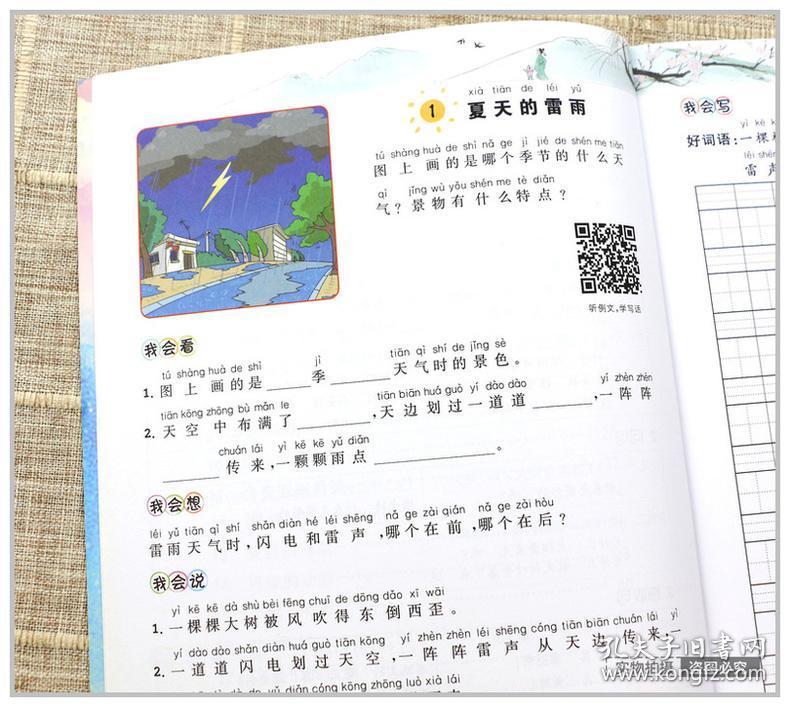 xià tiān de léi yǔ
1 夏天的雷雨
tú shàng huà de shì nǎ ge jì jié de shén me tiān
图上画的是哪个季节的什么天
qì jǐng wù yǒu shén me tè diǎn
气？景物有什么特点？
听例文，学写话
我会看
tú shàng huà de shì jì tiān qì shí de jǐng sè
1. 图上画的是____季______天气时的景色。
tiān kōng zhōng bù mǎn le tiān biān huá guò yí dào dào yí zhèn zhèn
2. 天空中布满了________，天边划过一道道______，一阵阵
chuán lái yì kē kē yǔ diǎn
______传来，一颗颗雨点____________。
我会想
léi yǔ tiān qì shí shǎn diàn hé léi shēng nǎ ge zài qián nǎ ge zài hòu
雷雨天气时，闪电和雷声，哪个在前，哪个在后？
我会说
yì kē kē dà shù bèi fēng chuī de dōng dǎo xī wāi
1. 一棵棵大树被风吹得东倒西歪。
yí dào dào shǎn diàn huá guò tiān kōng yí zhèn zhèn léi shēng cóng tiān biān chuán lái yì
2. 一道道闪电划过天空，一阵阵雷声从天边传来，一
de yǔ diǎn cóng kōng zhōng luò xià lái
我会写
yì kē k
好词语：一棵
léi shēn
雷声
孔夫子旧书网
实物拍摄 盗图必究
www.kongfz.com